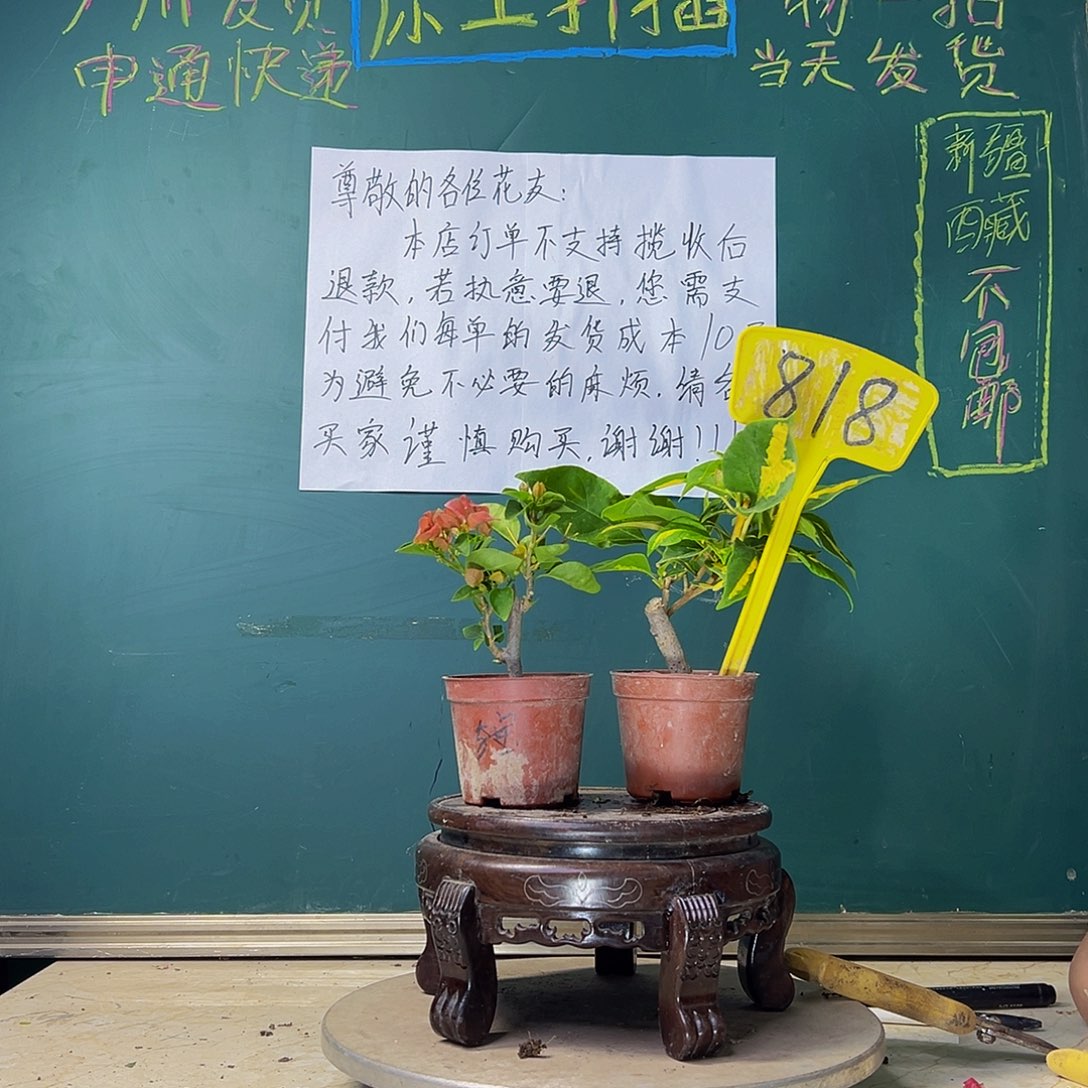 广州发货
原土打插
一物一拍
申通快递
当天发货
新疆
西藏
不包邮
尊敬的各位花友:
本店订单不支持揽收后
退款,若执意要退,您需支
付我们每单的发货成本10
为避免不必要的麻烦.请各
买家谨慎购买,谢谢!!!
818